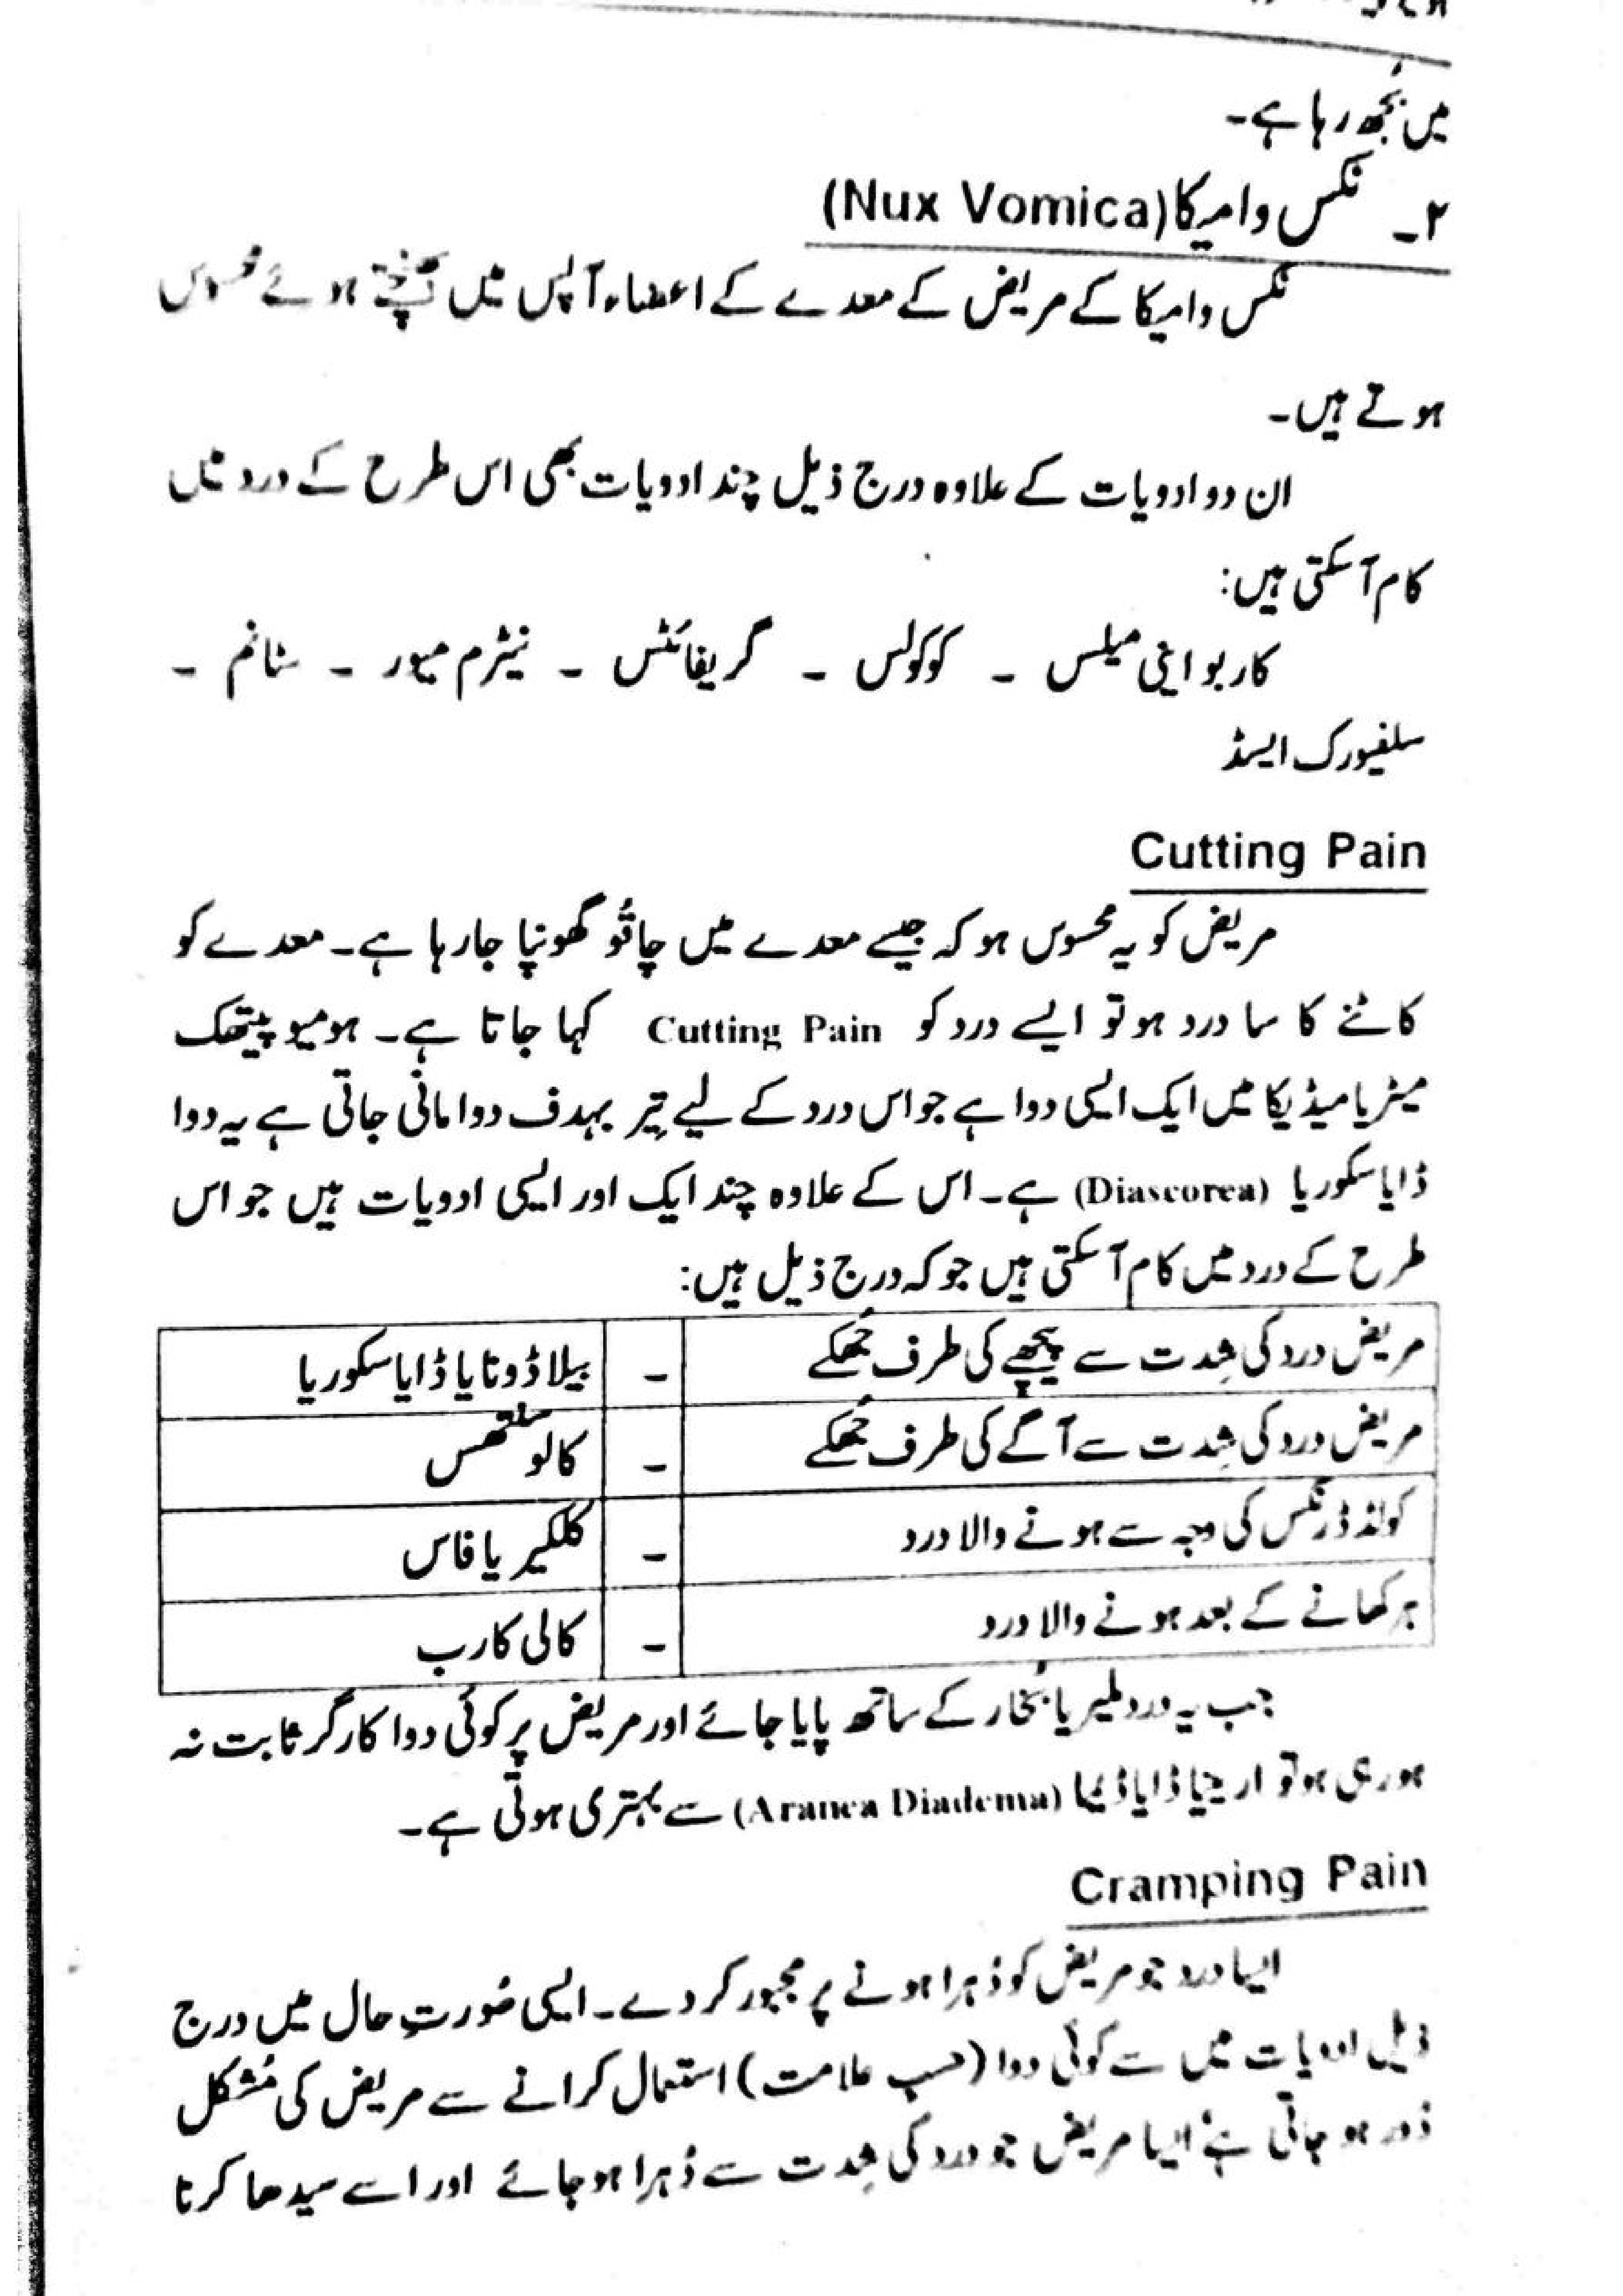 میں بُجھ رہا ہے۔
۲۔ نکس وامیکا (Nux Vomica)
نکس وامیکا کے مریض کے معدے کے اعضاء آپس میں کھنچتے ہوئے محسوس
ہوتے ہیں۔
ان دو ادویات کے علاوہ درج ذیل چند ادویات بھی اس طرح کے درد میں
کام آ سکتی ہیں:
کاربو اینی میلس ۔ کوکولس ۔ گریفائٹس ۔ نیٹرم میور ۔ سٹانم ۔
سلفیورک ایسڈ
Cutting Pain
مریض کو یہ محسوس ہو کہ جیسے معدے میں چاقُو گھونپا جا رہا ہے۔ معدے کو
کاٹنے کا سا درد ہو تو ایسے درد کو Cutting Pain کہا جاتا ہے۔ ہومیوپیتھک
میٹریا میڈیکا میں ایک ایسی دوا ہے جو اس درد کے لیے تِیر بہدف دوا مانی جاتی ہے یہ دوا
ڈایاسکوریا (Diascorea) ہے۔ اس کے علاوہ چند ایک اور ایسی ادویات ہیں جو اس
طرح کے درد میں کام آ سکتی ہیں جو کہ درج ذیل ہیں:
مریض درد کی شِدت سے پیچھے کی طرف جُھکے ۔ بیلاڈونا یا ڈایاسکوریا
مریض درد کی شِدت سے آگے کی طرف جُھکے ۔ کالوسنتھس
کولڈ ڈرنکس کی وجہ سے ہونے والا درد ۔ کلکیریا فاس
ہر کھانے کے بعد ہونے والا درد ۔ کالی کارب
جب یہ درد ملیریا بُخار کے ساتھ پایا جائے اور مریض پر کوئی دوا کارگر ثابت نہ
ہو رہی ہو تو ارینیا ڈایاڈیما (Aranea Diadema) سے بہتری ہوتی ہے۔
Cramping Pain
ایسا درد جو مریض کو دُہرا ہونے پر مجبور کر دے۔ ایسی صُورتِ حال میں درج
ذیل ادویات میں سے کوئی دوا (حسبِ علامت) استعمال کرانے سے مریض کی مُشکل
دُور ہو جاتی ہے۔ ایسا مریض جو درد کی شِدت سے دُہرا ہو جائے اور اسے سیدھا کرنا